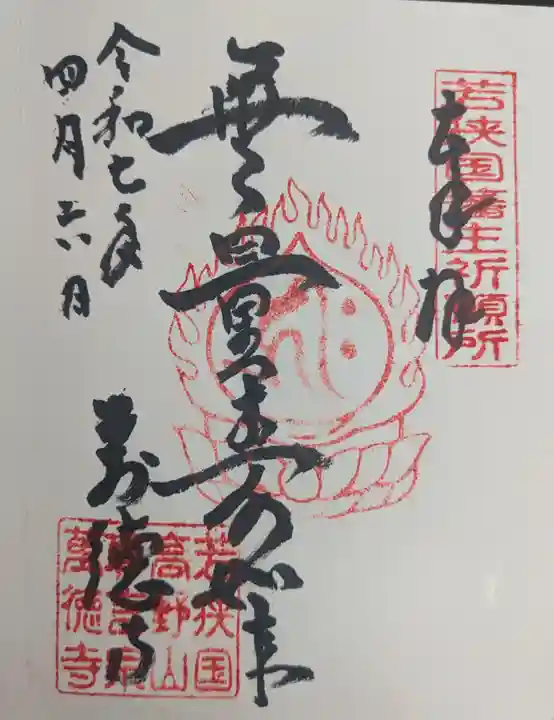 若狭国藩主祈願所
奉拝
無量寿如来
萬徳寺
令和七年
四月六日
若狭国
高野山
真言宗
萬徳寺